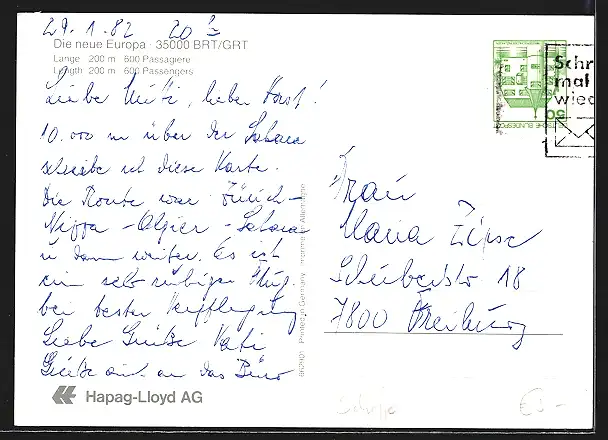 29.1.82 20
Die neue Europa · 35000 BRT/GRT
Länge 200 m 600 Passagiere
Length 200 m 600 Passengers
Liebe Mutti, lieber Horst!
10.000 m über der Sahara
schreibe ich diese Karte.
Die Route war Zürich -
Nizza - Algier - Sahara
u dann weiter. Es ist
ein sehr ruhiger Flug
bei bester Verpflegung
Liebe Grüße Kati
Grüße auch an das Büro
Hapag-Lloyd AG
Printed in Germany
Frau
Maria Zipse
Schubertstr. 18
7800 Freiburg
Schr
mal
wied
50
DEUTSCHE BUNDESPOST